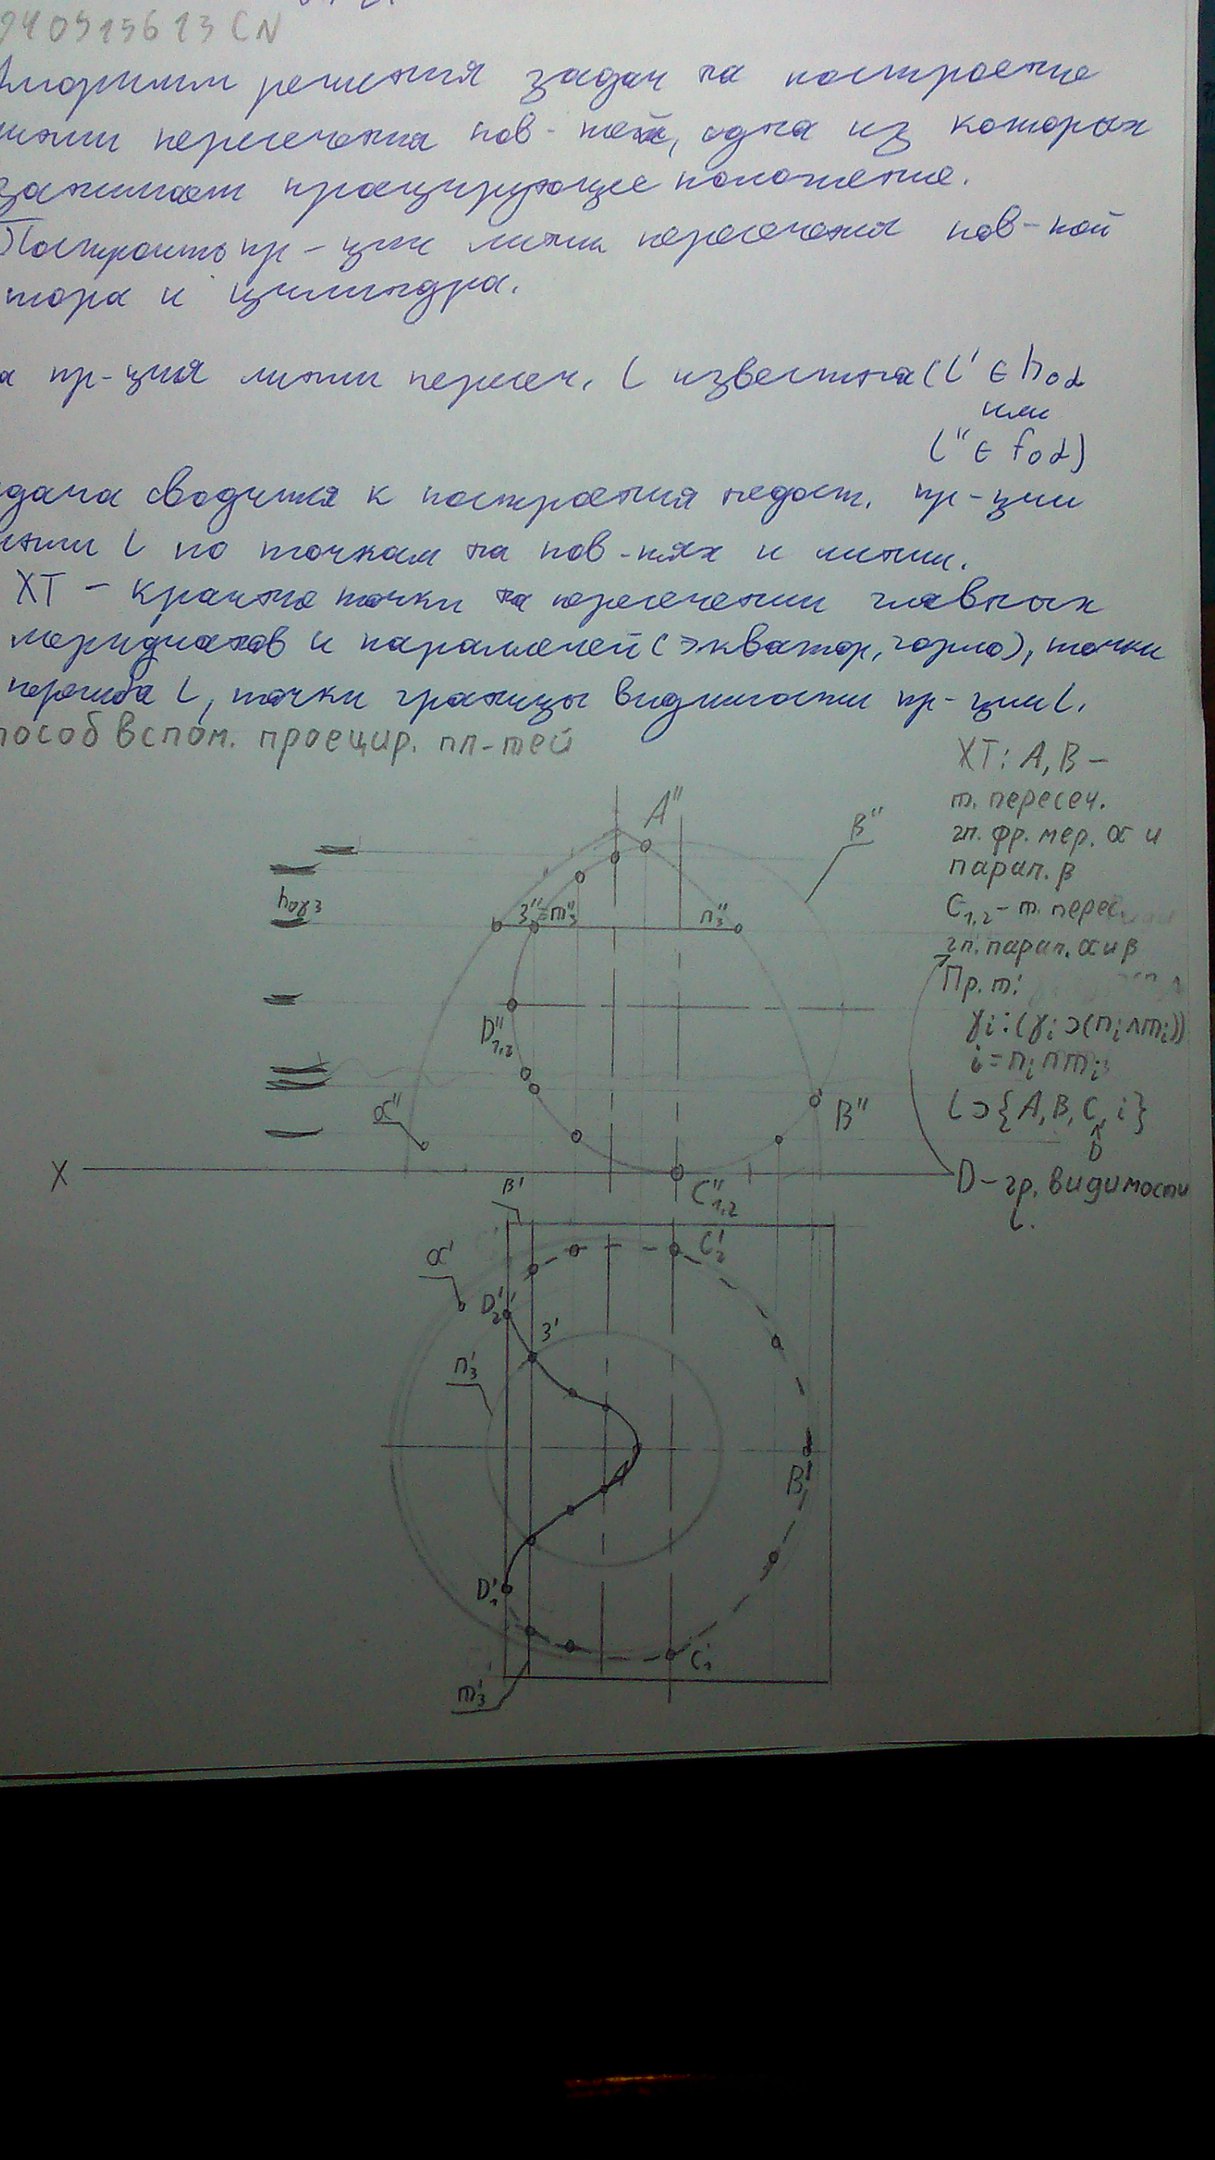 Алгоритм решения задач на построение
линии пересечения пов-тей, одна из которых
занимает проецирующее положение.
Построить пр-ции линии пересечения пов-тей
тора и цилиндра.
пр-ция линии пересеч. l известна (l' ∈ h₀α
или
l'' ∈ f₀α)
сводится к построения недост. пр-ции
l по точкам на пов-тях и линии.
ХТ - крайние точки на пересечении главных
меридианов и параллелей (экватор, горло), точки
перегиба l, точки границы видимости пр-ции l.
способ вспом. проецир. пл-тей
ХТ: А, В -
т. пересеч.
гл. фр. мер. α и
парал. β
С₁,₂ - т. перес
гл. парал. α и β
Пр. т:
γi : (γi ⊃ (ni ∧ mi))
i = ni ∩ mi
l ⊃ {A, B, C, i}
D
D - гр. видимости
l.
A''
B''
h₀γ3
3'' ≡ m₃''
n₃''
D''₁,₂
α''
B''
X
C''₁,₂
B'
α'
C₂'
D₂'
3'
n₃'
A'
B'
D₁'
C₁'
m₃'